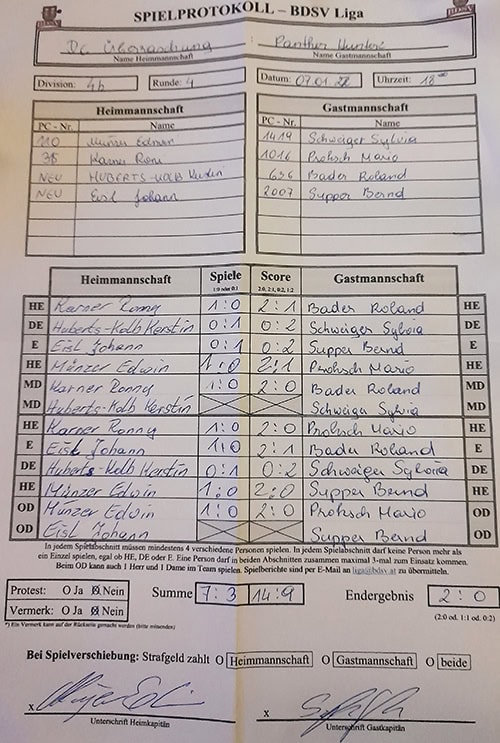 SPIELPROTOKOLL – BDSV Liga
Da Überraschung : Panther Hunters
Name Heimmannschaft Name Gastmannschaft
Division: 4b Runde: 4 Datum: 07.01.22 Uhrzeit: 18⁰⁰
Heimmannschaft Gastmannschaft
PC - Nr. Name PC - Nr. Name
110 Münzer Edwin 1419 Schwaiger Sylvia
36 Karner Rony 1016 Proksch Mario
NEU HUBERTS-KOLB Kerstin 636 Bader Roland
NEU Eistl Johann 2007 Supper Bernd
Heimmannschaft Spiele Score Gastmannschaft
1:0 oder 0:1 2:0, 2:1, 0:2, 1:2
HE Karner Ronny 1:0 2:1 Bader Roland HE
DE Huberts-Kolb Kerstin 0:1 0:2 Schwaiger Sylvia DE
E Eistl Johann 0:1 0:2 Supper Bernd E
HE Münzer Edwin 1:0 2:1 Proksch Mario HE
MD Karner Ronny 1:0 2:0 Bader Roland MD
MD Huberts-Kolb Kerstin Schwaiger Sylvia MD
HE Karner Ronny 1:0 2:0 Proksch Mario HE
E Eistl Johann 1:0 2:1 Bader Roland E
DE Huberts-Kolb Kerstin 0:1 0:2 Schwaiger Sylvia DE
HE Münzer Edwin 1:0 2:0 Supper Bernd HE
OD Münzer Edwin 1:0 2:0 Proksch Mario OD
OD Eistl Johann Supper Bernd OD
In jedem Spielabschnitt müssen mindestens 4 verschiedene Personen spielen. In jedem Spielabschnitt darf keine Person mehr als
ein Einzel spielen, egal ob HE, DE oder E. Eine Person darf in beiden Abschnitten zusammen maximal 3-mal zum Einsatz kommen.
Beim OD kann auch 1 Herr und 1 Dame im Team spielen. Spielberichte sind per E-Mail an liga@bdsv.at zu übermitteln.
Protest: O Ja Ø Nein Summe 7:3 14:9 Endergebnis 2:0
Vermerk: O Ja Ø Nein (2:0 od. 1:1 od. 0:2)
*) Ein Vermerk kann auf der Rückseite gemacht werden (bitte mitsenden)
Bei Spielverschiebung: Strafgeld zahlt O Heimmannschaft O Gastmannschaft O beide
x x
Unterschrift Heimkapitän Unterschrift Gastkapitän